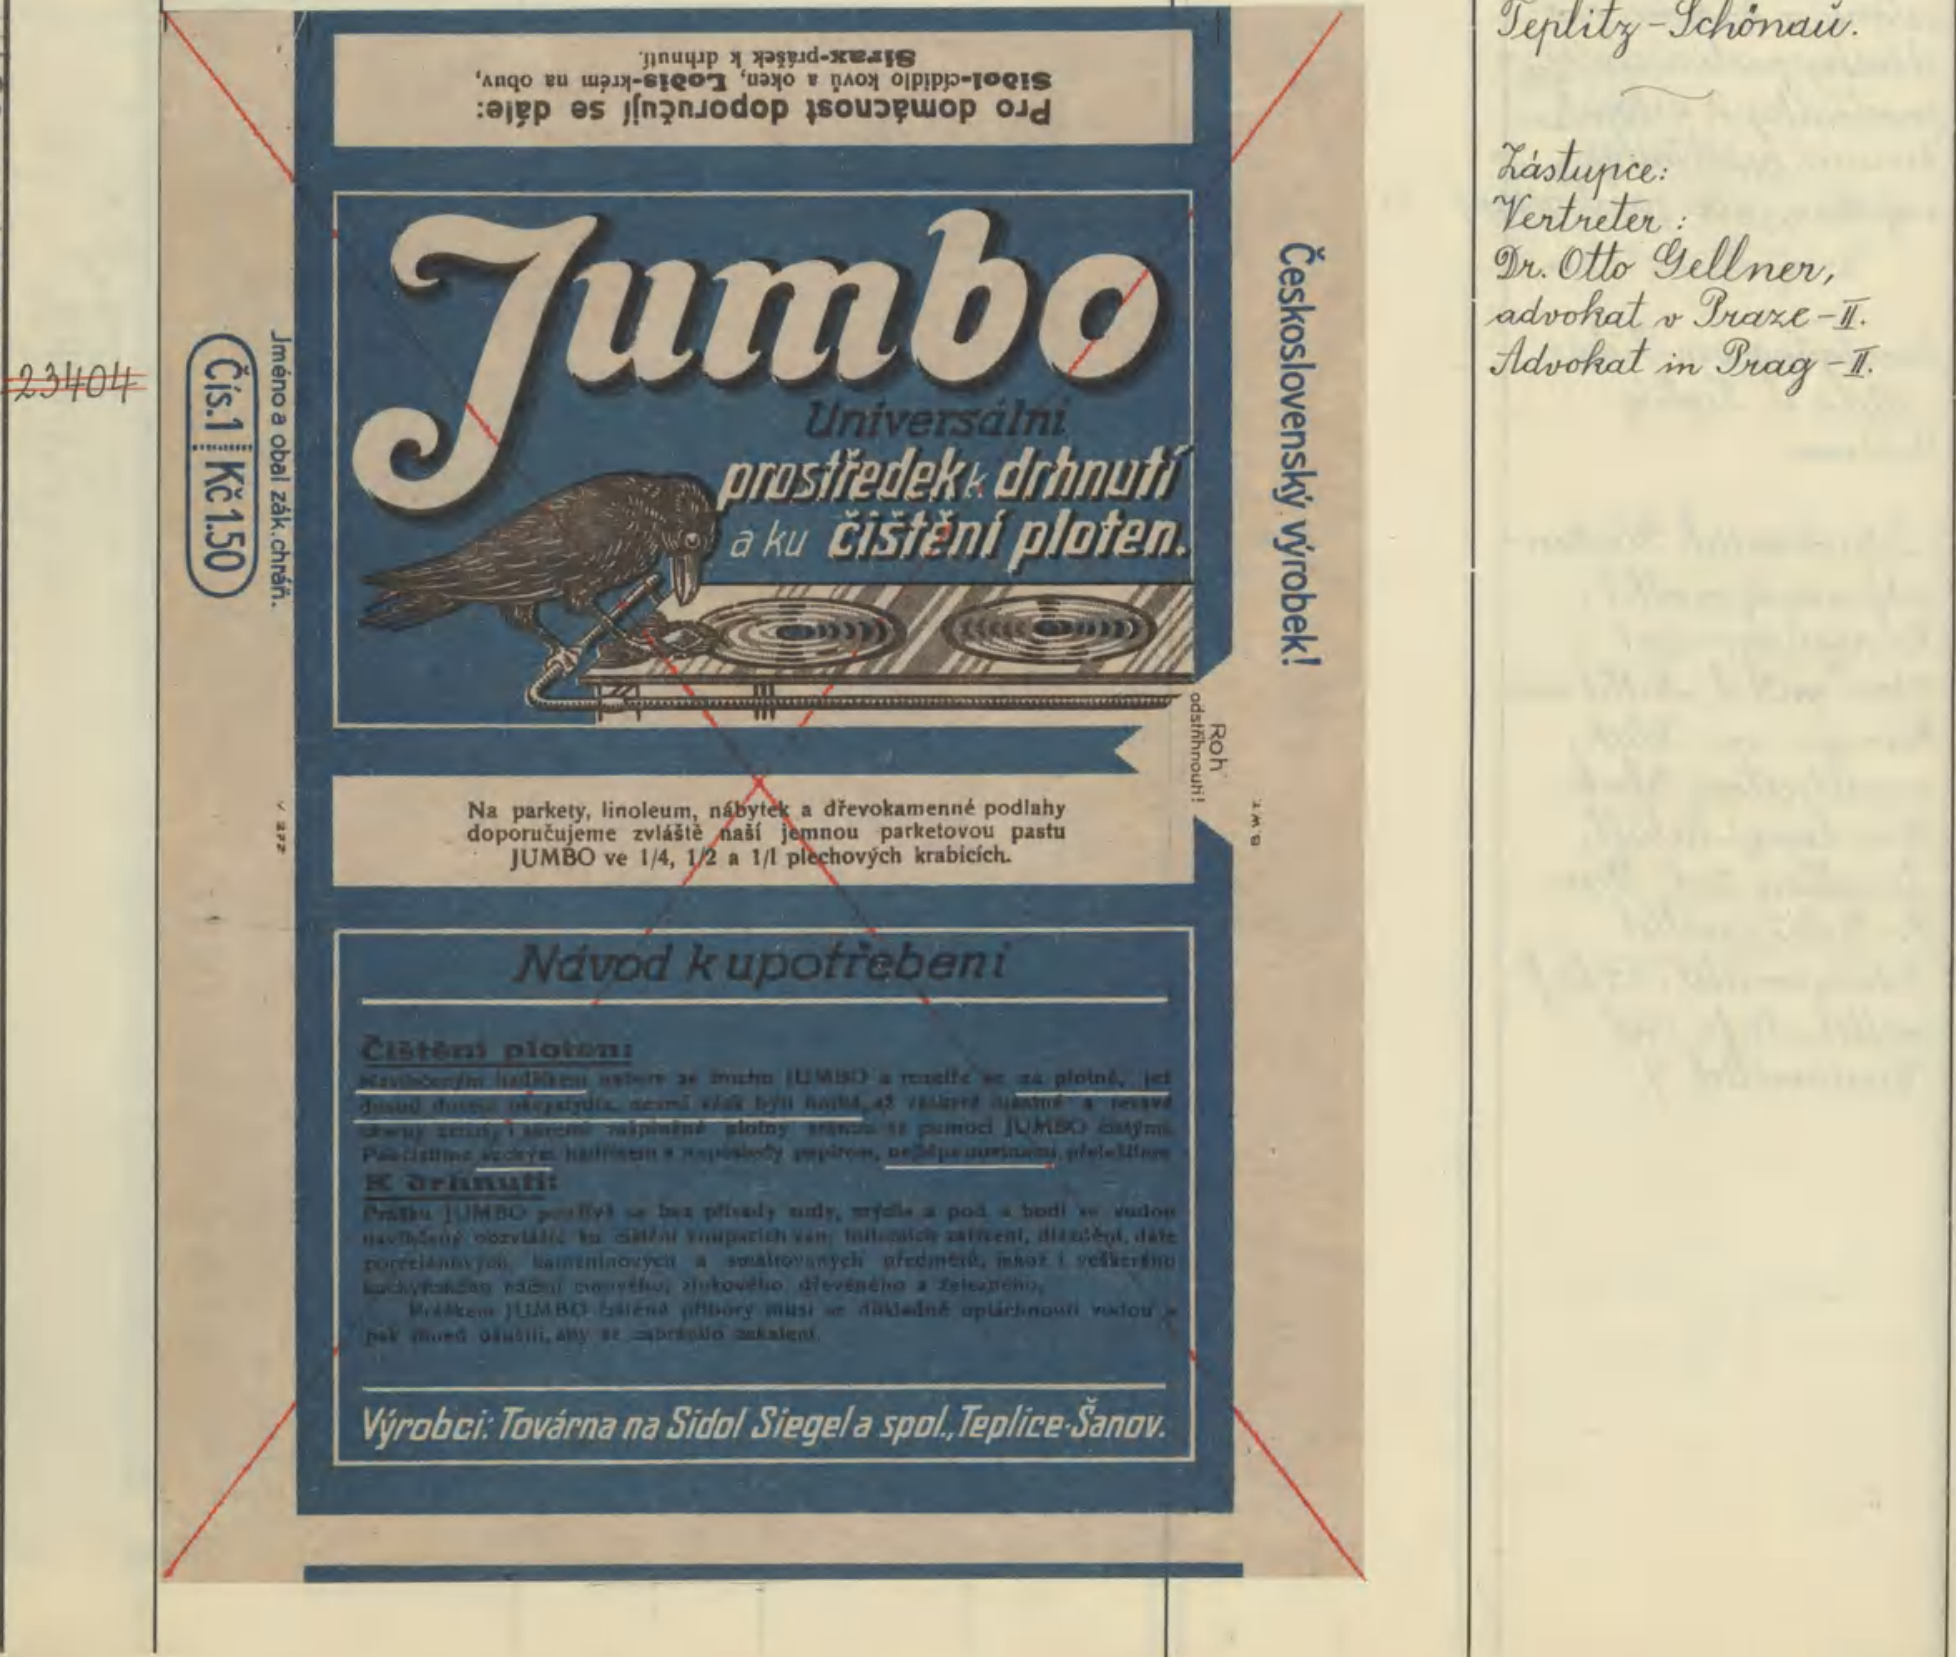 23404
Pro domácnost doporučují se dále:
Sidol-cídidlo kovů a oken, Lodis-krém na obuv,
Sirax-prášek k drhnutí.
Jumbo
Universální
prostředek k drhnutí
a ku čištění ploten.
Jméno a obal zák. chráň.
Čís.1 Kč 1.50
Československý výrobek!
Roh
odstřihnouti!
Na parkety, linoleum, nábytek a dřevokamenné podlahy
doporučujeme zvláště naší jemnou parketovou pastu
JUMBO ve 1/4, 1/2 a 1/1 plechových krabicích.
Návod k upotřebení
Čištění ploten:
hadříkem JUMBO a se na plotně, jež
dosud nesmí však býti horká, až veškeré mastné a
skvrny zašpiněné plotny pomocí JUMBO
suchým hadříkem a naposledy papírem, nejlépe novinami, přeleštíme
K drhnutí:
Prášku JUMBO používá se bez přísady sody, mýdla a pod. a hodí se vodou
navlhčený obzvláště ku čištění koupacích van, zařízení, dláždění, dále
porcelánových, kameninových a smaltovaných předmětů, jakož i veškerého
kuchyňského náčiní cínového, zinkového, dřevěného a železného.
Práškem JUMBO čištěné příbory musí se důkladně opláchnouti vodou a
pak ihned osušiti, aby se zabránilo zakalení.
Výrobci: Továrna na Sidol Siegel a spol., Teplice-Šanov.
Teplitz-Schönau.
Zástupce:
Vertreter:
Dr. Otto Gellner,
advokat v Praze-II.
Advokat in Prag-II.